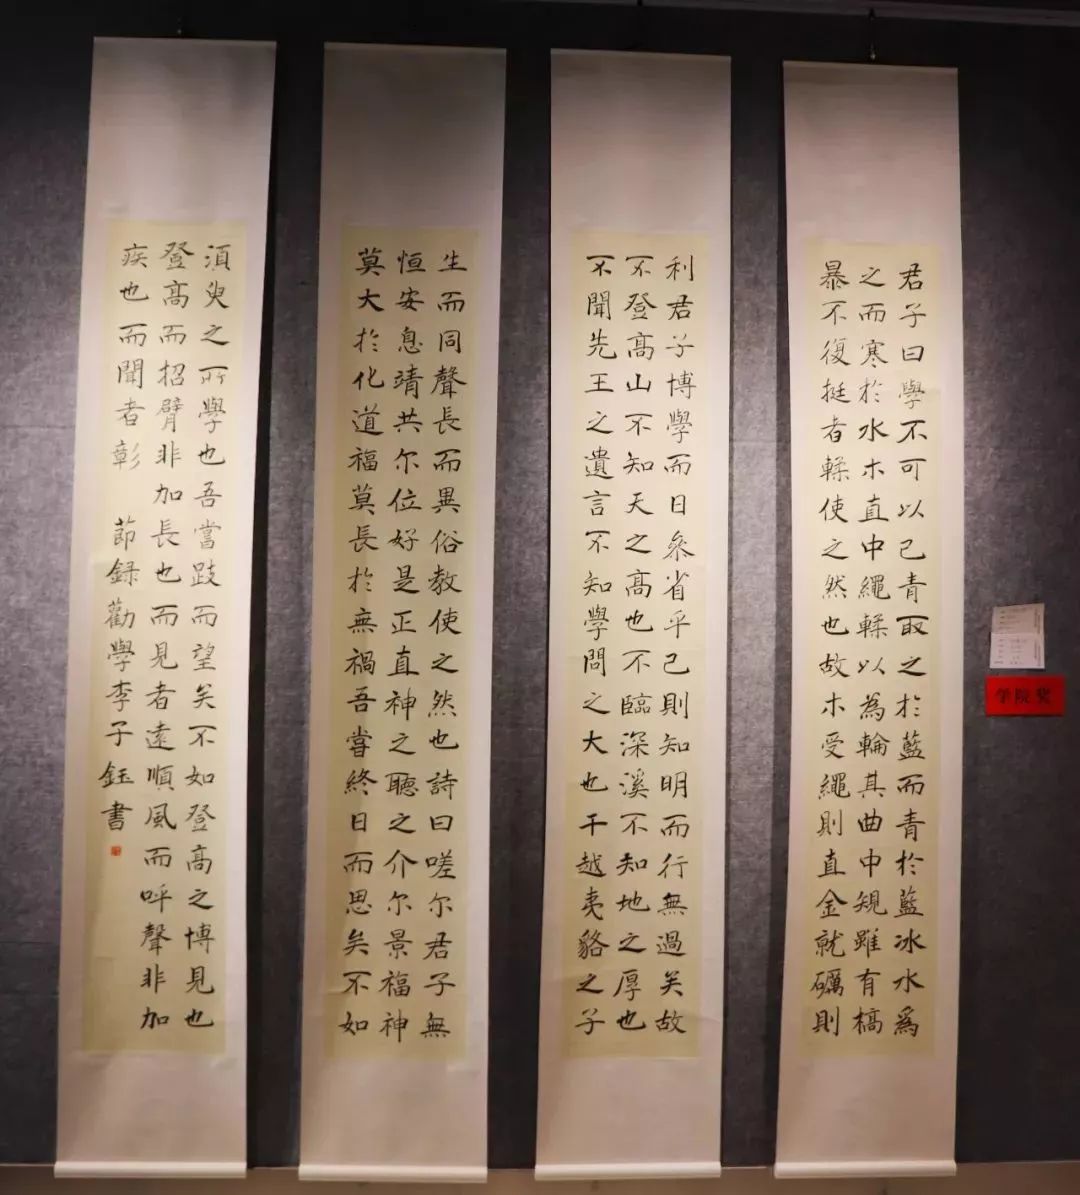 君子曰學不可以已青取之於藍而青於藍冰水爲
之而寒於水木直中繩輮以為輪其曲中規雖有槁
暴不復挺者輮使之然也故木受繩則直金就礪則
利君子博學而日參省乎己則知明而行無過矣故
不登高山不知天之高也不臨深溪不知地之厚也
不聞先王之遺言不知學問之大也干越夷貉之子
生而同聲長而異俗教使之然也詩曰嗟尔君子無
恒安息靖共尔位好是正直神之聽之介尔景福神
莫大於化道福莫長於無禍吾嘗終日而思矣不如
須臾之所學也吾當跂而望矣不如登高之博見也
登高而招臂非加長也而見者遠順風而呼聲非加
疾也而聞者彰 節録勸學李子鈺書
学院奖